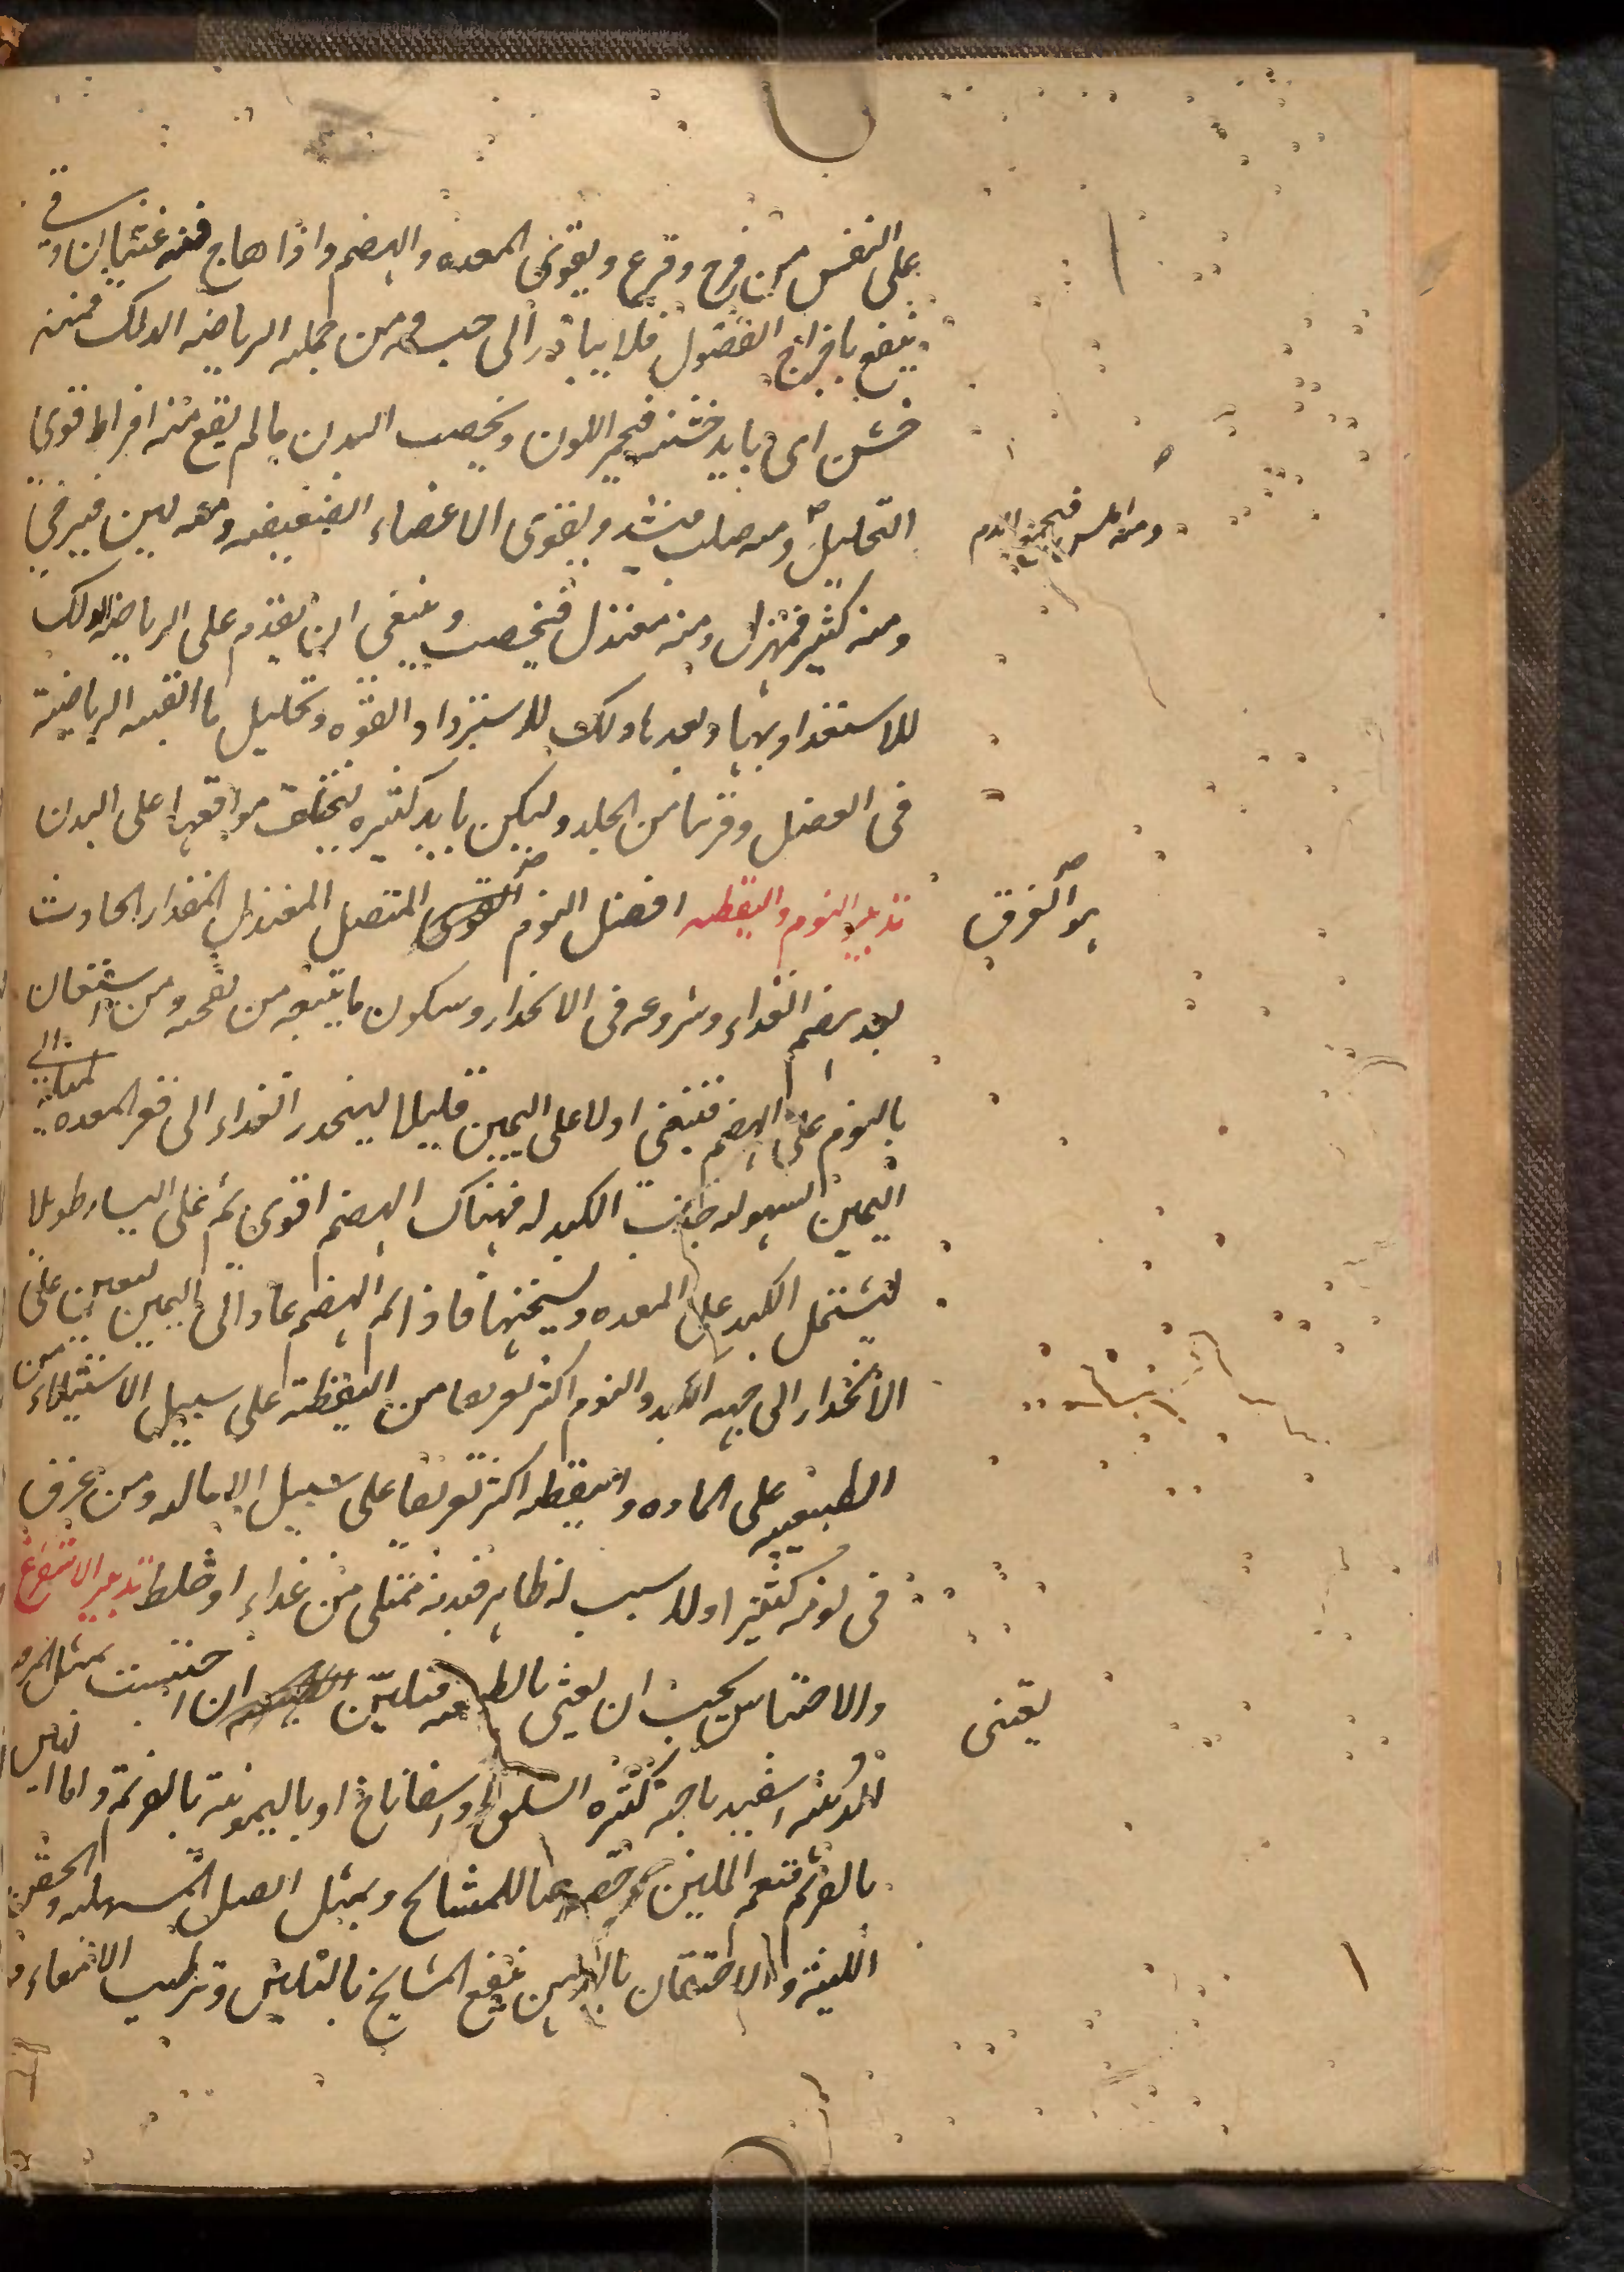 على النفس من فرح وقرع ويقوى المعده والهضم واذا هاج فيه غثيان وقى
ينفع باخراج الفضول فلا يبادر الى حبسه ومن جمله الرياضه الدلك فمنه
خشن اى بايد خشنه فيحمر اللون ويخصب البدن مالم يقع منه افراط قوى
التحليل ومنه صلب فيشد ويقوى الاعضاء الضعيفه ومنه لين فيرخى
ومنه املس فيحمر الدم
ومنه كثير فيهزل ومنه معتدل فيخصب وينبغى ان يقدم على الرياضه الدلك
للاستعداد بها وبعدها دلك للاسترداد القوه وتحليل ما ابقته الرياضية
فى العضل وقربها من الجلد وليكن بايد كثيره تختلف مواقعها على البدن
تدبير النوم واليقظه افضل النوم الغرق المتصل المعتدل المقدار الحادث
هو الغرق
بعد هضم الغداء وشروعه فى الانحدار وسكون ما يتبعه من نفخه ومن استعان
بالنوم على الهضم فينبغى اولا على اليمين قليلا لينحدر الغداء الى قعر المعده
اليمين لسهوله جذب الكبد له فهناك الهضم اقوى ثم على اليسار طويلا
ليشتمل الكبد على المعده ويسخنها فاذا تم الهضم عاد الى اليمين ليعين على
الانحدار الى جهه الكبد والنوم اكثر تعريقا من اليقظة على سبيل الاستيلاء من
الطبيعيه على الماده واليقظه اكثر تعريقا على سبيل الاماله ومن عرق
فى نومه كثيرا ولا سبب له ظاهر فبدنه ممتلى من غداء او خلط تدبير الاستفراغ
والاحتباس يجب ان يعتنى بالطبيعه فتلين ان احتبست بمثل المرق
يعتنى
اسفيد باجه كثره السلق واسفاناخ او باليمونيه بالقرطم واما التين
بالقرطم فنعم الملين خصوصا للمشايخ وبمثل العسل المسهله والحقن
اللينه والاحتقان بالدهن ينفع المشايخ بالتليين وترطيب الامعاء